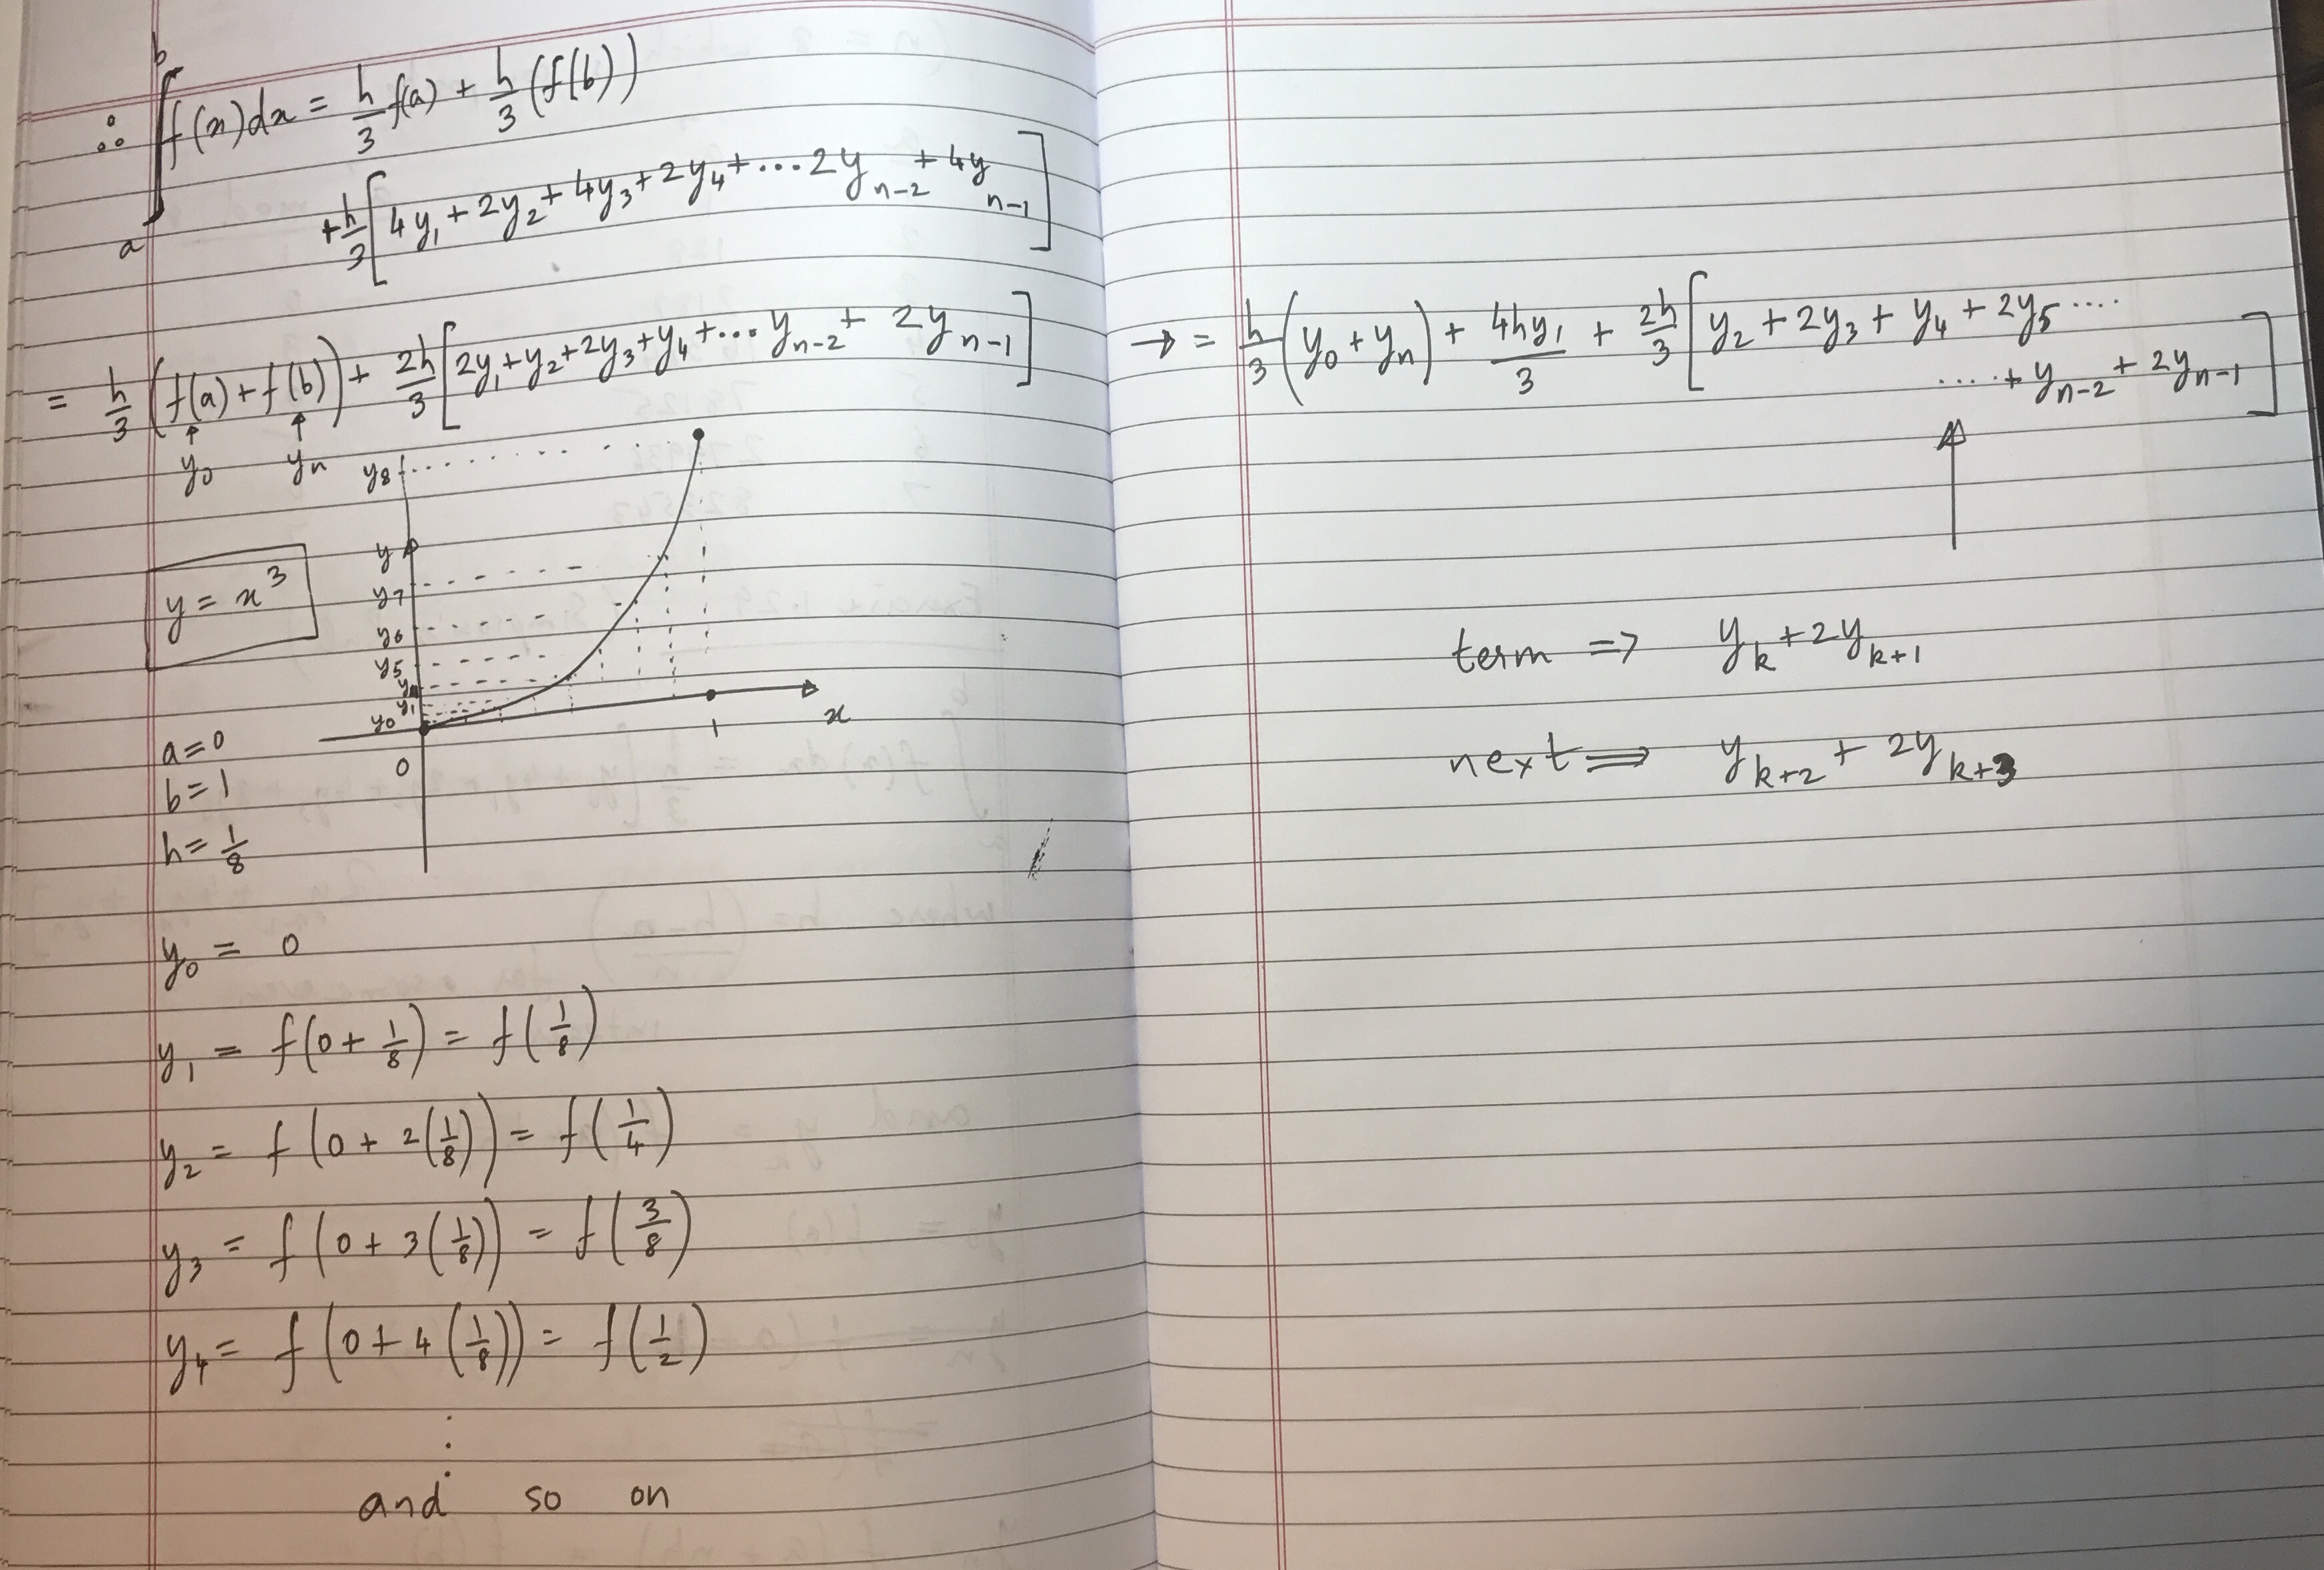 ∴ ∫_a^b f(x)dx = h/3 f(a) + h/3 (f(b))
+ h/3 [4y₁ + 2y₂ + 4y₃ + 2y₄ + ... 2y_{n-2} + 4y_{n-1}]
= h/3 (f(a) + f(b)) + 2h/3 [2y₁ + y₂ + 2y₃ + y₄ + ... y_{n-2} + 2y_{n-1}]
↑ ↑
y₀ yₙ
y₈
y
y₇
y = x³
y₆
y₅
y₄
y₁
y₀
x
1
0
a = 0
b = 1
h = 1/8
y₀ = 0
y₁ = f(0 + 1/8) = f(1/8)
y₂ = f(0 + 2(1/8)) = f(1/4)
y₃ = f(0 + 3(1/8)) = f(3/8)
y₄ = f(0 + 4(1/8)) = f(1/2)
⋮
and so on
→ = h/3 (y₀ + yₙ) + 4hy₁/3 + 2h/3 [y₂ + 2y₃ + y₄ + 2y₅ ....
.... + y_{n-2} + 2y_{n-1}]
↑
term ⇒ y_k + 2y_{k+1}
next ⇒ y_{k+2} + 2y_{k+3}